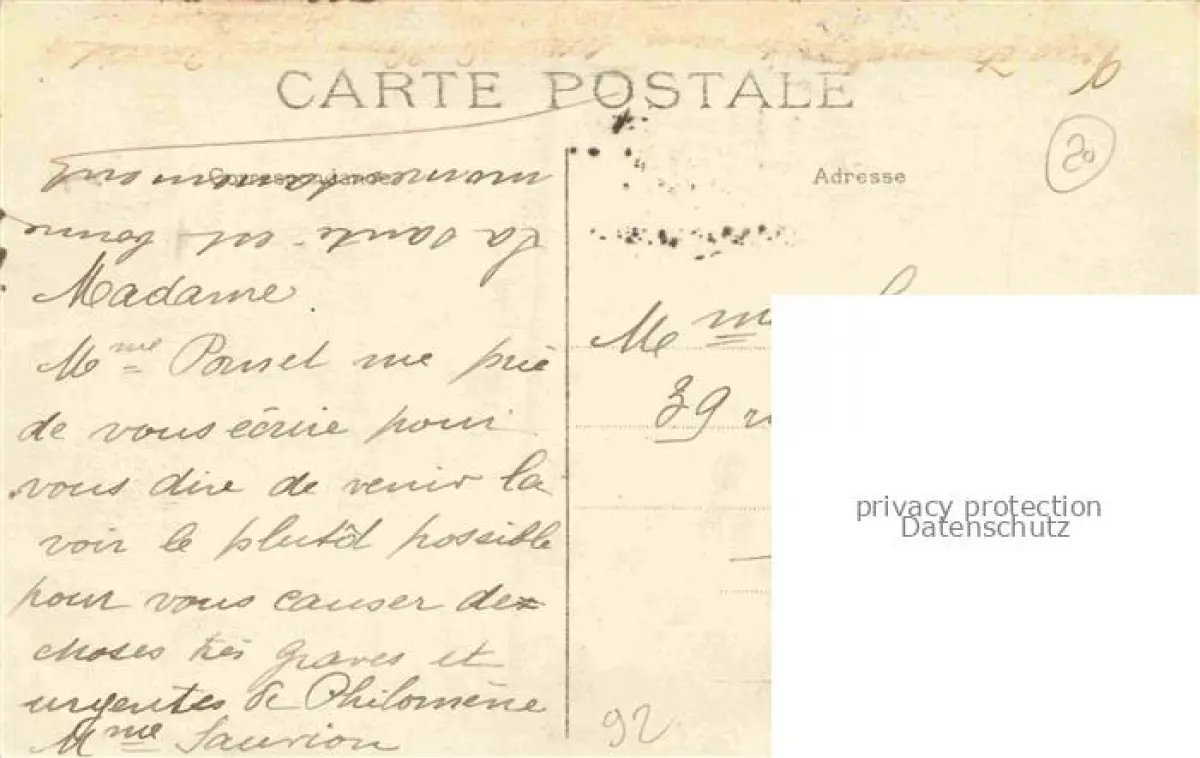 CARTE POSTALE
Correspondance
la santé est bonne
Madame
Mme Ponsel me prie
de vous écrire pour
vous dire de venir la
voir le plutôd possible
pour vous causer de
choses très graves et
urgentes de Philomène
Mme Saurion
Adresse
20
Mme
39
92
privacy protection
Datenschutz